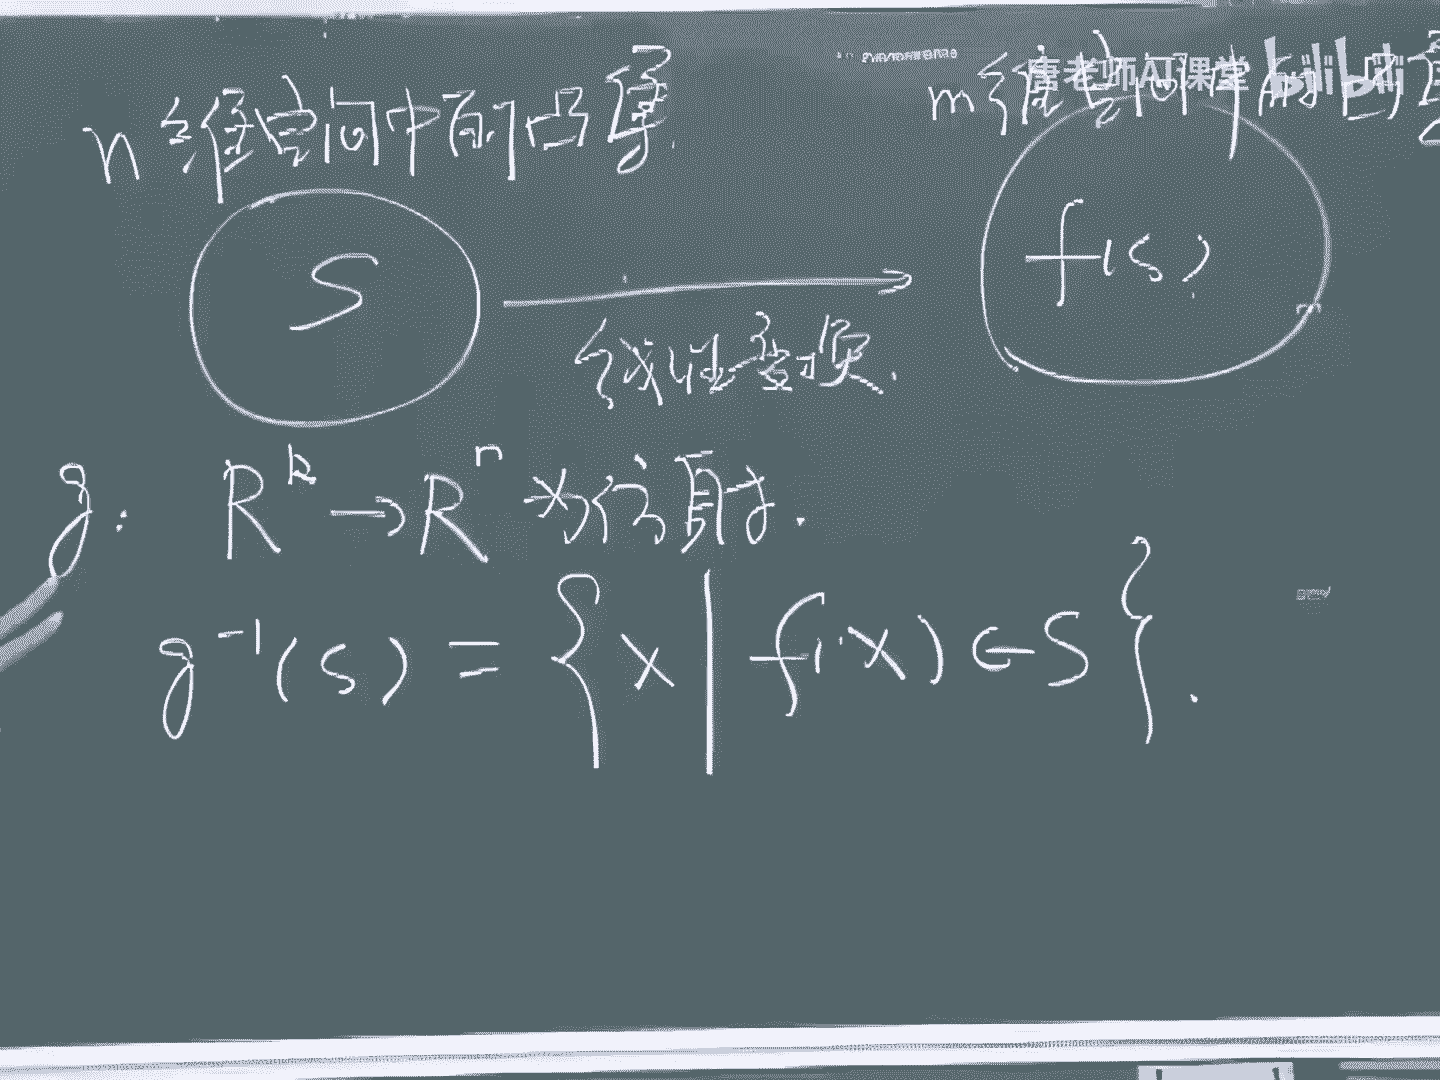 n维空间中的凸集.
m维空间中的凸集
唐老师AI课堂 bilibili
S
f(s)
线性变换.
g: R^k→R^n 为仿射.
g^-1(s) = {x | f(x)∈S}.